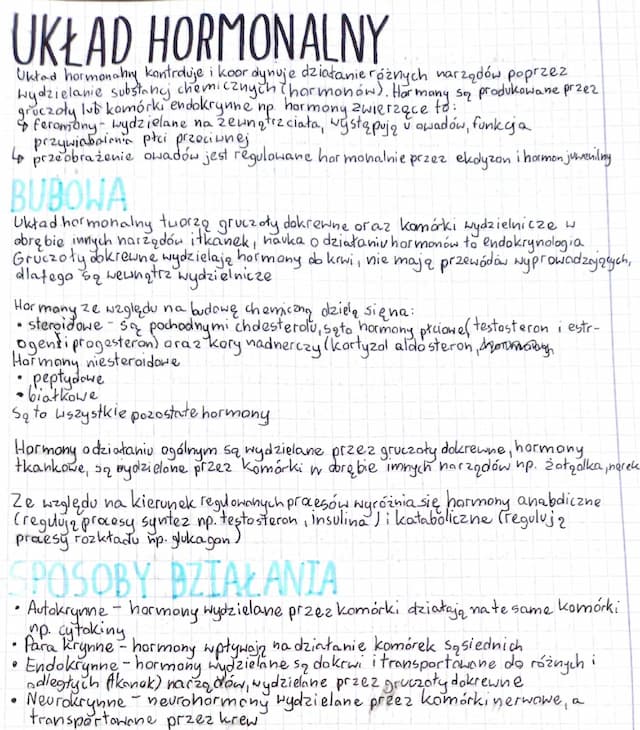 UKŁAD HORMONALNY
Układ hormonalny kontroluje i koordynuje działanie różnych narządów poprzez
wydzielanie substancj chemicznych (hormonów). Hormony są produkowane przez
gruczoły lub komórki endokrynne np. hormony zwierzęce to:
↳ feromony - wydzielane na zewnątrz ciała, występują u owadów, funkcja
przywiabiania płci przeciwnej
↳ przeobrażenie owadów jest regulowane hormonalnie przez ekdyzon i hormon juwenilny
BUDOWA
Układ hormonalny tworzą gruczoły dokrewne oraz komórki wydzielnicze w
obrębie innych narządów i tkanek, nauka o działaniu hormonów to endokrynologia
Gruczoły dokrewne wydzielają hormony do krwi, nie mają przewodów wyprowadzających,
dlatego są wewnątrz wydzielnicze
Hormony ze względu na budowę chemiczną dzielą się na:
• steroidowe - są pochodnymi cholesterolu, są to hormony płciowe (testosteron i estr-
ogen i progesteron) oraz kory nadnerczy (kortyzol aldosteron,
Hormony niesteroidowe
• peptydowe
• białkowe
Są to wszystkie pozostałe hormony
Hormony o działaniu ogólnym są wydzielane przez gruczoły dokrewne, hormony
tkankowe, są wydzielone przez komórki w obrębie innych narządów np. żołądka, nerek
Ze względu na kierunek regulowanych procesów wyróżnia się hormony anaboliczne
(regulują procesy syntez np. testosteron, insulina) i kataboliczne (regulują
procesy rozkładu np. glukagon)
SPOSOBY DZIAŁANIA
• Autokrynne - hormony wydzielane przez komórki działają na te same komórki
np. cytokiny
• Parakrynne - hormony wpływają na działanie komórek sąsiednich
• Endokrynne - hormony wydzielane są do krwi i transportowane do różnych i
odległych (tkanek) narządów, wydzielane przez gruczoły dokrewne
• Neurokrynne - neurohormony wydzielane przez komórki nerwowe, a
transportowane przez krew